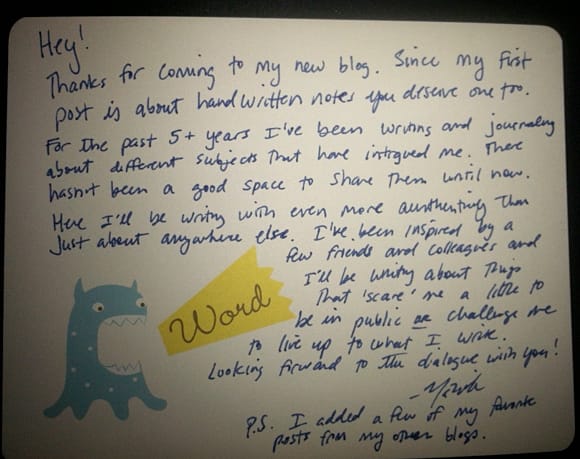 Hey!
Thanks for coming to my new blog. Since my first
post is about handwritten notes you deserve one too.
For the past 5+ years I've been writing and journaling
about different subjects that have intrigued me. There
hasn't been a good space to share them until now.
Here I'll be writing with even more authenticity than
just about anywhere else. I've been inspired by a
few friends and colleagues and
I'll be writing about things
that 'scare' me a little to
Word
be in public or challenge me
to live up to what I write.
Looking forward to the dialogue with you!
P.S. I added a few of my favorite
posts from my other blogs.